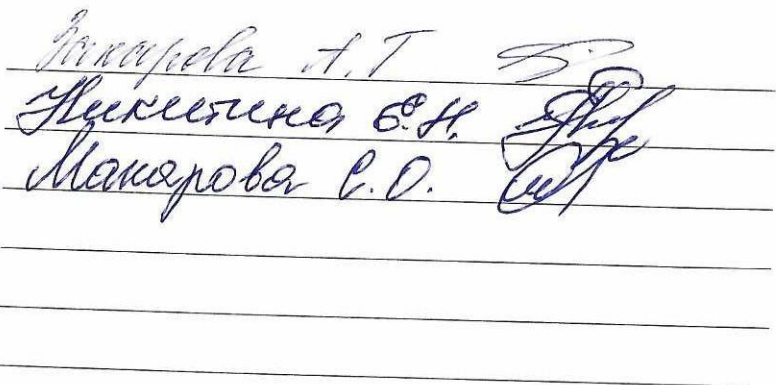 Захарова А.Г
Никитина Е.Н.
Макарова С.О.